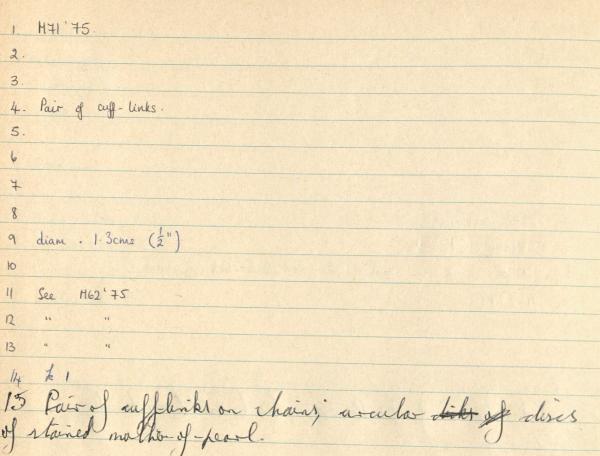 1 M71'75.
2.
3.
4. Pair of cuff-links.
5.
6
7
8
9 diam. 1.3cms (½")
10
11 See M62'75
12 " "
13 " "
14 k 1
15 Pair of cufflinks on chains; circular disks of discs
of stained mother-of-pearl.